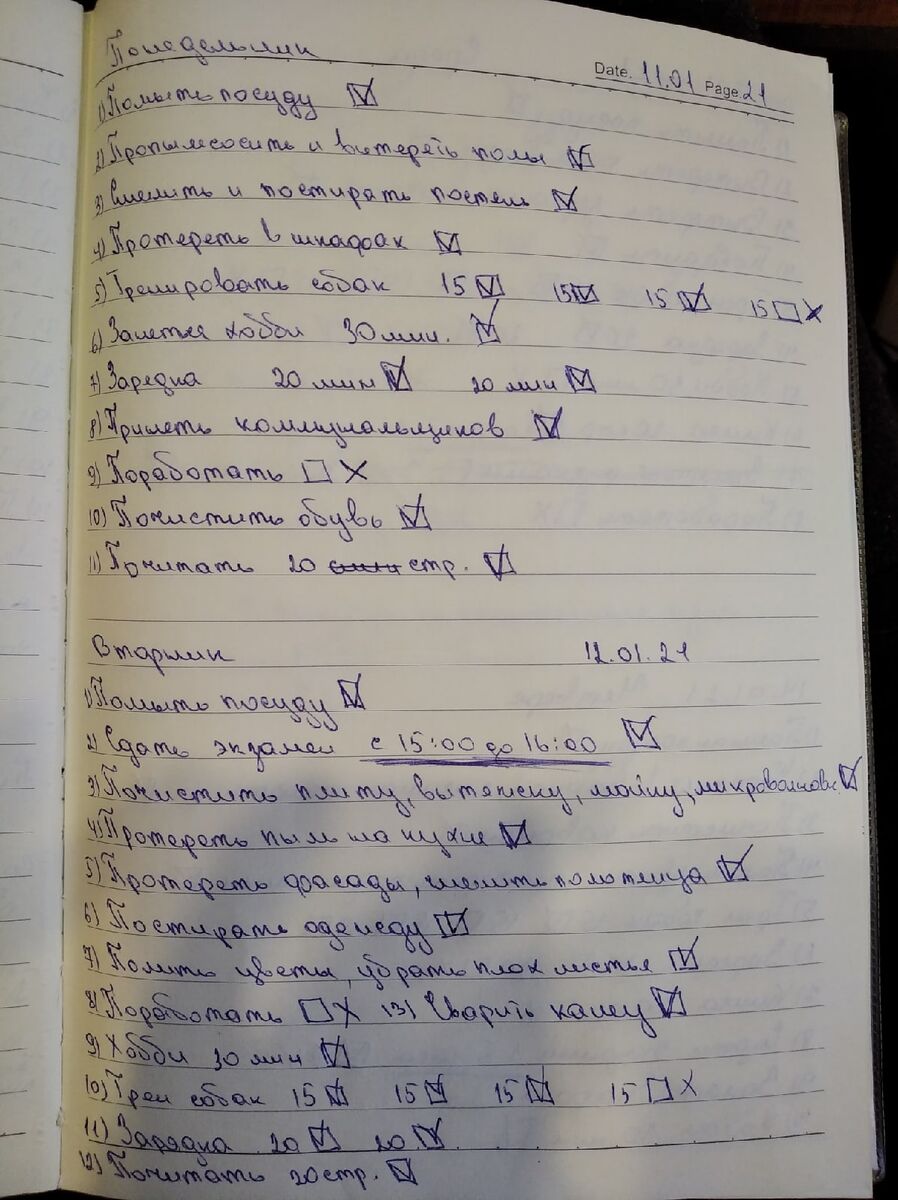 Понедельник
Date. 11.01 Page.21
1) Помыть посуду ☑
2) Пропылесосить и вытереть полы ☑
3) Сменить и постирать постель ☑
4) Протереть в шкафах ☑
5) Тренировать собак 15 ☑ 15 ☑ 15 ☑ 15 ☐ X
6) Занятья хобби 30 мин. ☑
7) Зарядка 20 мин ☑ 20 мин ☑
8) Принять коммунальщиков ☑
9) Поработать ☐ X
10) Почистить обувь ☑
11) Почитать 20 стр. ☑
Вторник 12.01.21
1) Помыть посуду ☑
2) Сдать экзамен с 15:00 до 16:00 ☑
3) Почистить плиту, вытяжку, мойку, микроволновк ☑
4) Протереть пыль на кухне ☑
5) Протереть фасады, сменить полотенца ☑
6) Постирать одежду ☑
7) Полить цветы, убрать плох листья ☑
8) Поработать ☐ X 13) Сварить кашу ☑
9) Хобби 30 мин ☑
10) Трен собак 15 ☑ 15 ☑ 15 ☑ 15 ☐ X
11) Зарядка 20 ☑ 20 ☑
12) Почитать 20 стр. ☑